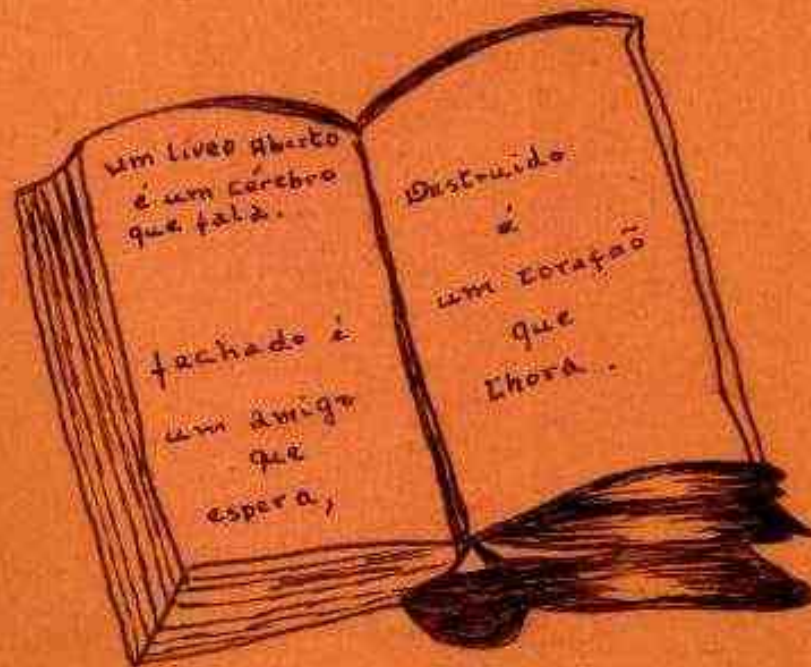 um livro Aberto
é um cérebro
que fala.
fechado é
um amigo
que
espera,
Destruido
é
um coração
que
chora.